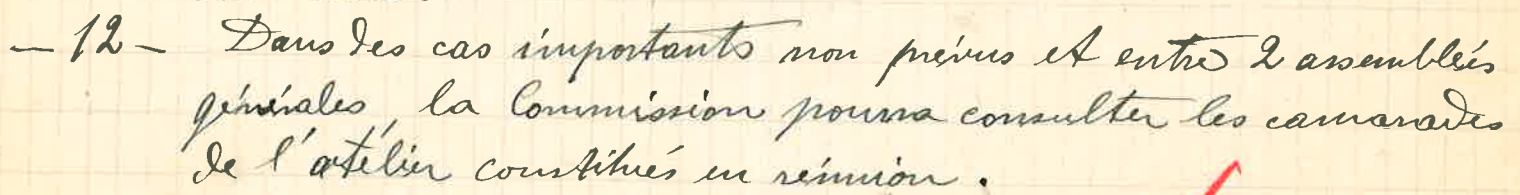 - 12 - Dans des cas importants non prévus et entre 2 assemblées
générales, la Commission pourra consulter les camarades
de l'atélier constitués en réunion.